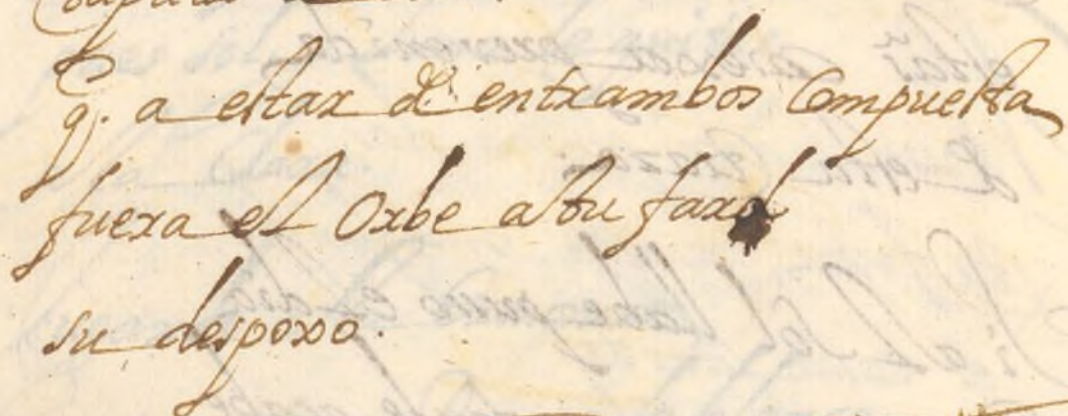 q. a estar de entrambos Compuesta
fuera el Orbe a tu farol
su despoxo.